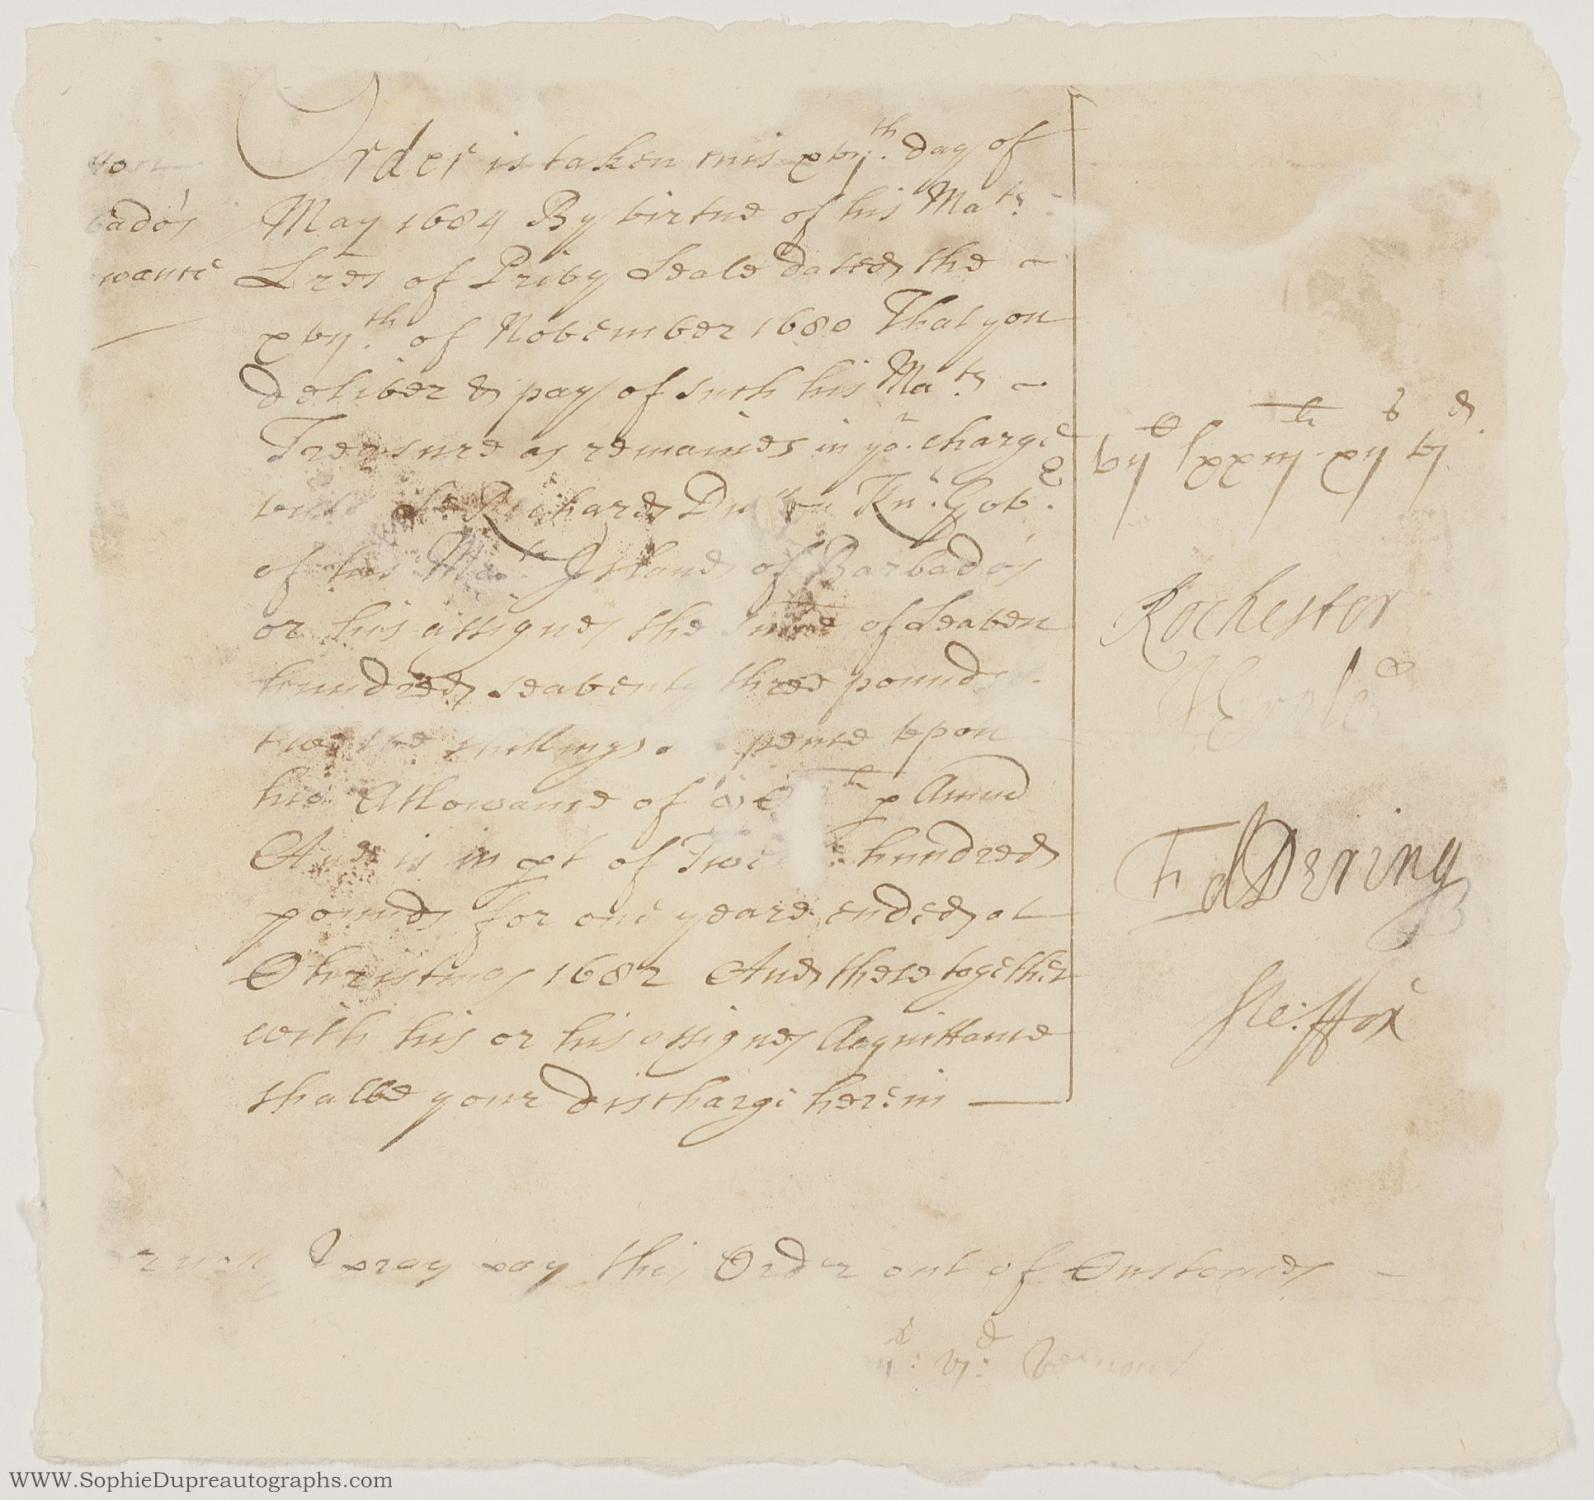 bado's
wance
Order is taken this xvijth. day of
May 1684 By virtue of his Mats.
Lres of Privy Seale dated the
xvijth. of November 1680 That you
deliver & pay of such his Mats.
Treasure as remaines in yor. charge
unto Sr. Richard Dutton Knt. Govr.
of his Mats. Island of Barbado's
or his assignes the summe of Seaven
hundred seaventy three pounds
twelve shillings pence upon
his Allowance of li p Annu
And is in pt of Twelve hundred
pounds for one yeare ended at
Christmas 1682 And these together
with his or his assignes Acquittance
shalbe your discharge herein
vijC lxxiijli. xijs vjd
Rochester
Ed Dering
Ste: ffox
I pray pay this Order out of Customes
vjd:
WWW.SophieDupreautographs.com